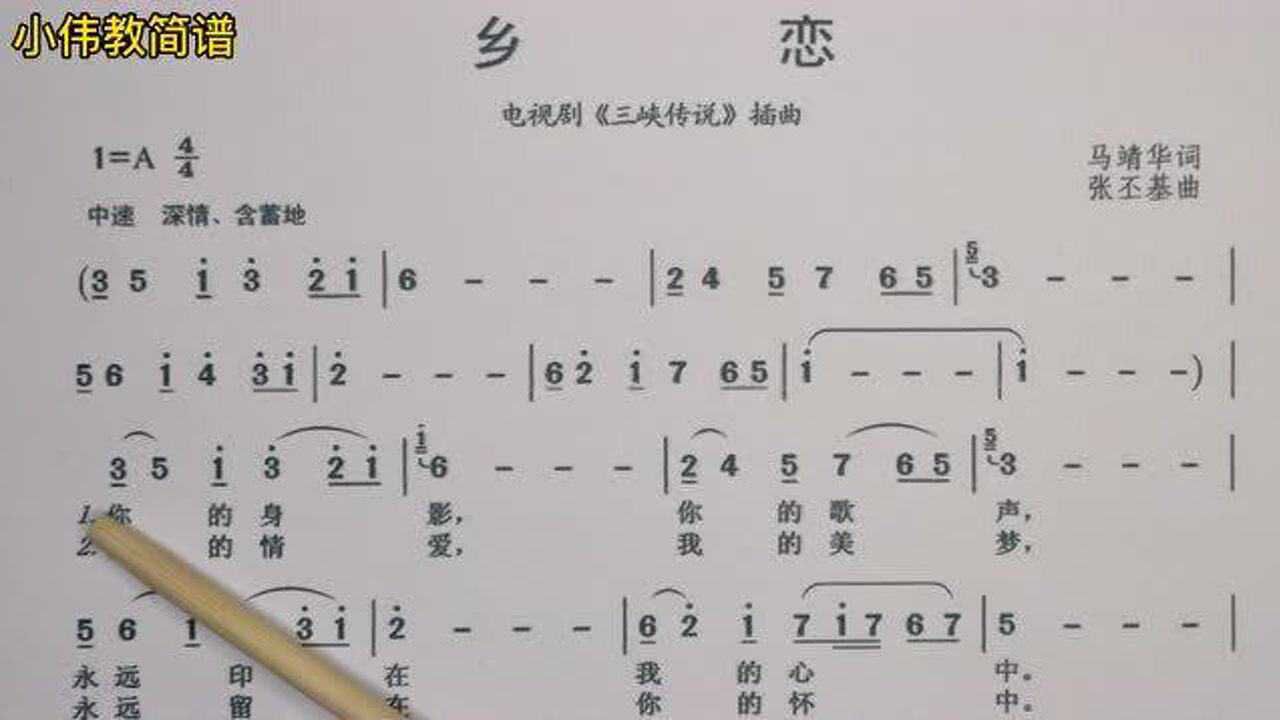 小伟教简谱
乡 恋
电视剧《三峡传说》插曲
1=A 4/4
马靖华词
张丕基曲
中速 深情、含蓄地
(3 5 1̇ 3̇ 2̇ 1̇ | 6 - - - | 2 4 5 7 6 5 | 5 3 - - - |
5 6 1̇ 4̇ 3̇ 1̇ | 2̇ - - - | 6 2̇ 1̇ 7 6 5 | 1̇ - - - | 1̇ - - -) |
3 5 1̇ 3̇ 2̇ 1̇ | 1̇ 6 - - - | 2 4 5 7 6 5 | 5 3 - - - |
1. 你 的 身 影, 你 的 歌 声,
2. 的 情 爱, 我 的 美 梦,
5 6 1 3̇ 1̇ | 2̇ - - - | 6 2̇ 1̇ 7 1̇ 7 6 7 | 5 - - - |
永 远 印 在 我 的 心 中。
永 远 留 在 你 的 怀 中。